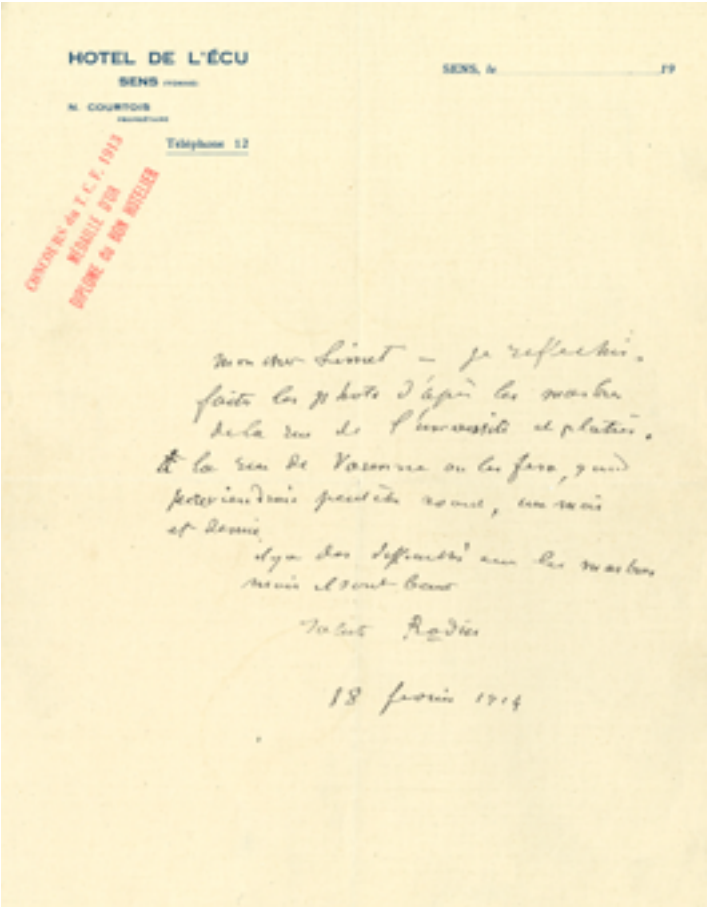 HOTEL DE L'ÉCU
SENS (YONNE)
N. COURTOIS
PROPRIÉTAIRE
Téléphone 12
SENS, le 19
CONCOURS du T. C. F. 1913
MÉDAILLE D'OR
DIPLOME du BON HOTELIER
mon cher Limet – je reflechis.
faites les photo d'après les marbres
de la rue de l'université et platres.
A la rue de Varenne on les fera, quand
je reviendrai peut être avant, un mois
et demie
il y a des difficultés sur les marbres
mais il sont beaux
Rodin
18 fevrier 1914